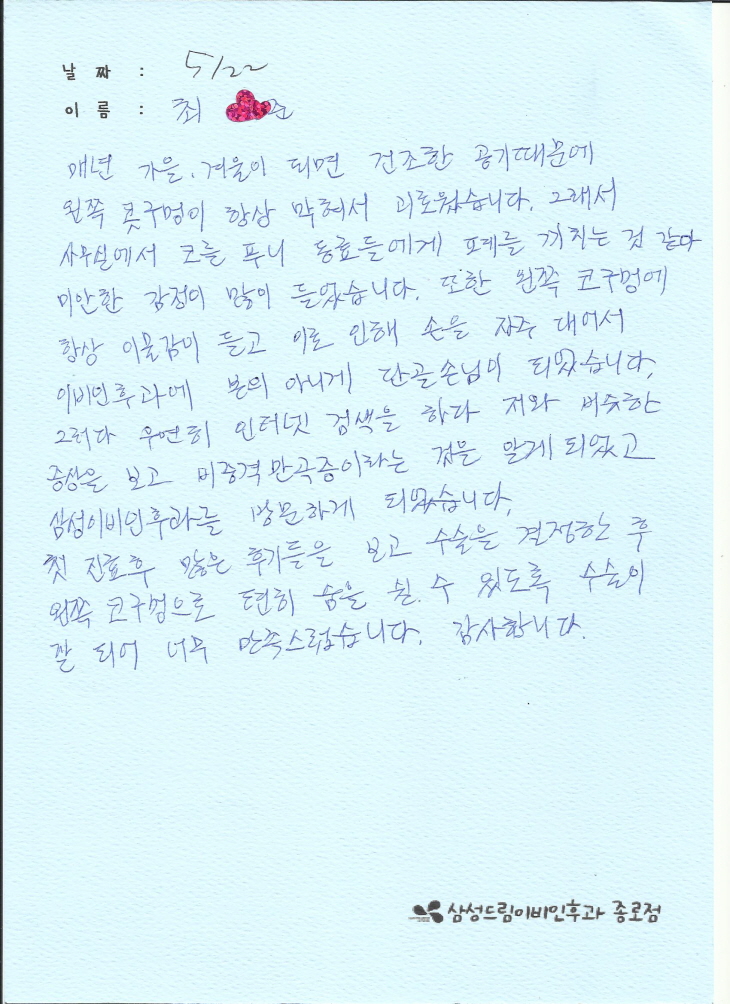 날 짜 : 5/22
이 름 : 최 준
매년 가을, 겨울이 되면 건조한 공기때문에
왼쪽 콧구멍이 항상 막혀서 괴로웠습니다. 그래서
사무실에서 코를 푸니 동료들에게 폐를 끼치는 것 같아
미안한 감정이 많이 들었습니다. 또한 왼쪽 코구멍에
항상 이물감이 들고 이로 인해 손을 자주 대어서
이비인후과에 본의 아니게 단골손님이 되었습니다.
그러다 우연히 인터넷 검색을 하다 저와 비슷한
증상을 보고 비중격만곡증이라는 것을 알게 되었고
삼성이비인후과를 방문하게 되었습니다.
첫 진료후 많은 후기들을 보고 수술을 결정한 후
왼쪽 코구멍으로 편히 숨을 쉴 수 있도록 수술이
잘 되어 너무 만족스럽습니다. 감사합니다.
삼성드림이비인후과 종로점